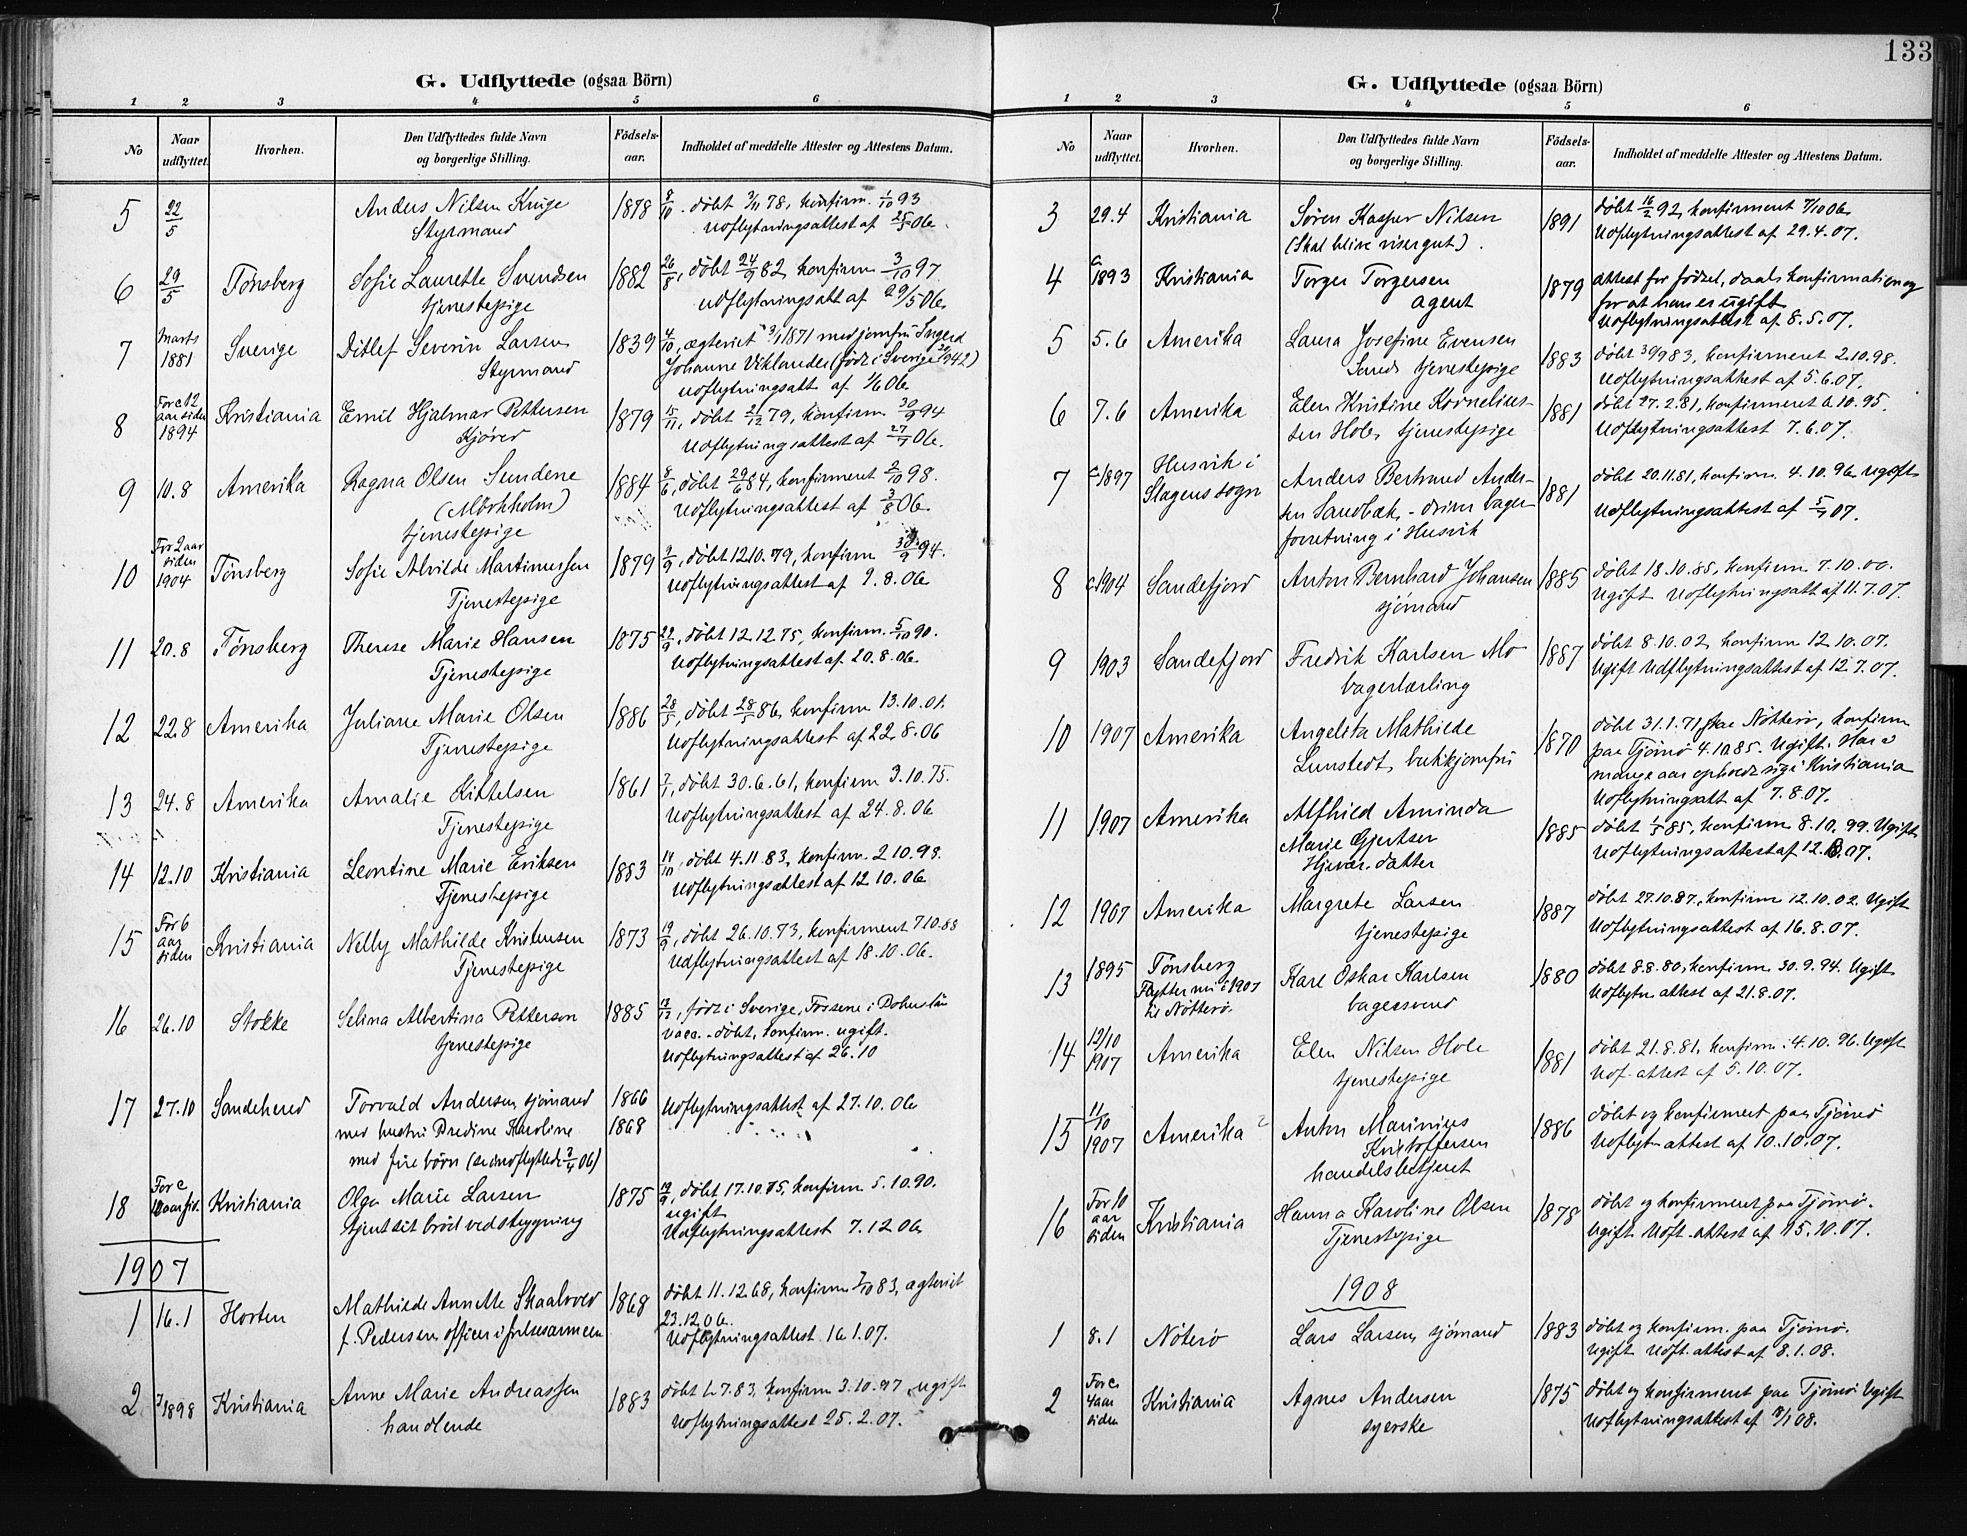 133
G. Udflyttede (ogsaa Börn)
1 2 3 4 5 6
No
Naar udflyttet.
Hvorhen.
Den Udflyttedes fulde Navn og borgerlige Stilling.
Födsels-aar.
Indholdet af meddelte Attester og Attestens Datum.
5 22/5 Anders Nilsen Kruge 1878 9/10. döbt 3/11 78, konfirm. 1/10 93
Styrmand Udflytningsattest af 25/5 06.
6 29/5 Tønsberg Sofie Laurette Svendsen 1882 26/8, döbt 24/9 82, konfirm 3/10 97
tjenestepige udflytningsatt af 29/5 06.
7 Marts 1881 Sverige Ditlef Severin Larsen 1839 4/10, ægteviet 3/1 1871 med jomfru Ingerd
Styrmand Johanne Viklander (född i Sverige
udflytningsatt af 1/6 06.
8 For c 12 aar siden 1894 Kristiania Emil Hjalmar Pettersen 1879 15/11, döbt 21/12 79, konfirm 30/9 94
Skjörer Udflytningsattest af 27/7 06.
9 10.8 Amerika Ragna Olsen Sundene 1884 8/6, döbt 29/6 84, konfirmeret 2/10 98.
(Mörkholm) Udflytningsattest af 3/8 06.
tjenestepige
10 For 2 aar siden 1904 Tönsberg Sofie Alvilde Martinussen 1879 9/9, döbt 12.10.79, konfirm 30/9 94.
Tjenestepige Udflytningsattest af 9.8.06.
11 20.8 Tönsberg Therese Marie Hansen 1875 22/9, döbt 12.12.75, konfirm. 5/10 90.
Tjenestepige Udflytningsattest af 20.8.06.
12 22.8 Amerika Juliane Marie Olsen 1886 28/5, döbt 28/5 86, konfirm 13.10.01.
Tjenestepige Udflytningsattest af 22.8.06
13 24.8 Amerika Amalie Kittelsen 1861 7/1, döbt 30.6.61, konfirm 3.10.75.
Tjenestepige Udflytningsattest af 24.8.06
14 12.10 Kristiania Leontine Marie Eriksen 1883 14/10, döbt 4.11.83, konfirm. 2.10.98.
Tjenestepige Udflytningsattest af 12.10.06
15 For 6 aar siden Kristiania Nelly Mathilde Kristensen 1873 19/9, döbt 26.10.73, konfirmeret 7.10.88
Tjenestepige Udflytningsattest af 18.10.06.
16 26.10 Stokke Selina Albertina Petterson 1885 född i Sverige, Fossene i Bohuslän
tjenestepige vacc. - döbt, konfirm. ugift.
Udflytningsattest af 26.10
17 27.10 Sandehered Torvald Andersen, sjömand 1866 Udflytningsattest af 27.10.06
med hustru Bredine Karoline 1868
med fire börn (se indflyttede 3/4 06)
18 For c 10 aar sid. Kristiania Olga Marie Larsen 1875 19/9, döbt 17.10.75, konfirm 5.10.90.
tjent sit bröd ved stygning ugift
Udflytningsattest 7.12.06
1907
1 16.1 Horten Mathilde Annette Skaalvred 1868 döbt 11.12.68, konfirm 7/10 83, ægteviet
f. Pedersen, officer i frelsesarmeen 23.12.06.
Udflytningsattest 16.1.07.
2 1898 Kristiania Anne Marie Andreassen 1883 döbt 1.7.83, konfirm 3.10.97 ugift
handlende Udflytningsattest 25.2.07.
G. Udflyttede (ogsaa Börn)
1 2 3 4 5 6
No
Naar udflyttet.
Hvorhen.
Den Udflyttedes fulde Navn og borgerlige Stilling.
Födsels-aar.
Indholdet af meddelte Attester og Attestens Datum.
3 29.4 Kristiania Sören Kasper Nilsen 1891 döbt 16/2 92, konfirmeret 7/10 06.
(Skal blive visergut). Udflytningsattest af 29.4.07.
4 c 1893 Kristiania Torger Torgersen 1879 attest for födsel, daab konfirmation og
agent for at han er ugift
Udflytningsattest af 8.5.07.
5 5.6 Amerika Laura Josefine Evensen 1883 döbt 30/9 83, konfirmeret 2.10.98.
Sunds tjenestepige Udflytningsattest af 5.6.07.
6 7.6 Amerika Elen Kristine Kornelius- 1881 döbt 27.2.81, konfirmeret 6.10.95.
sen Hole, tjenestepige Udflytningsattest 7.6.07.
7 c 1897 Husvik i Slagens sogn Anders Bertrand Ander- 1881 döbt 20.11.81, konfirm. 4.10.96. ugift
sen Sandbæk, - driver bager Udflytningsattest af 5/7 07.
forretning i Husvik
8 c 1904 Sandefjord Anton Bernhard Johansen 1885 döbt 18.10.85, konfirm 7.10.00.
sjömand Ugift Udflytningsatt af 11.7.07.
9 1903 Sandefjord Fredrik Karlsen Mo 1887 döbt 8.10.02, konfirm 12.10.07.
bagerlærling Ugift Udflytningsattest af 12.7.07.
10 1907 Amerika Angelita Mathilde 1870 döbt 31.1.71 paa Nötterö, konfirm
Lunstedt, butikjomfru paa Tjömö 4.10.85. Ugift. Har i
mange aar opholdt sig i Kristiania
Udflytningsatt af 7.8.07.
11 1907 Amerika Alfhild Aminda 1885 döbt 1/5 85, konfirm 8.10.99. Ugift
Marie Gjertsen Udflytningsattest af 12.8.07.
Hjevær. datter
12 1907 Amerika Margrete Larsen 1887 döbt 27.10.87, konfirm 12.10.02. Ugift
tjenestepige Udflytningsattest af 16.8.07.
13 1895 Tönsberg Kare Oskar Karlsen 1880 döbt 8.8.80, konfirm 30.9.94. Ugift
Flytter nu i 1907 til Nötterö. bagersvend Udflytn attest af 21.8.07.
14 12/10 1907 Amerika Elen Nilsen Hole 1881 döbt 21.8.81, konfirm. 4.10.96. Ugift
tjenestepige Udf. attest af 5.10.07.
15 11/10 1907 Amerika Anton Marinius 1886 döbt og konfirmeret paa Tjömö
Kristoffersen Udflytn attest af 10.10.07.
handelsbetjent
16 For 10 aar siden Kristiania Hanna Karoline Olsen 1878 döbt og konfirmeret paa Tjömö.
Tjenestepige Ugift Udft. attest af 15.10.07.
1908
1 8.1 Nöterö Lars Larsen, sjömand 1883 döbt og konfirm. paa Tjömö.
Ugift Udft. attest af 8.1.08.
2 For c. 4 aar siden Kristiania Agnes Andersen 1875 döbt og konfirmeret paa Tjömö Ugift
syerske Udflytningsattest af 18/1 08.